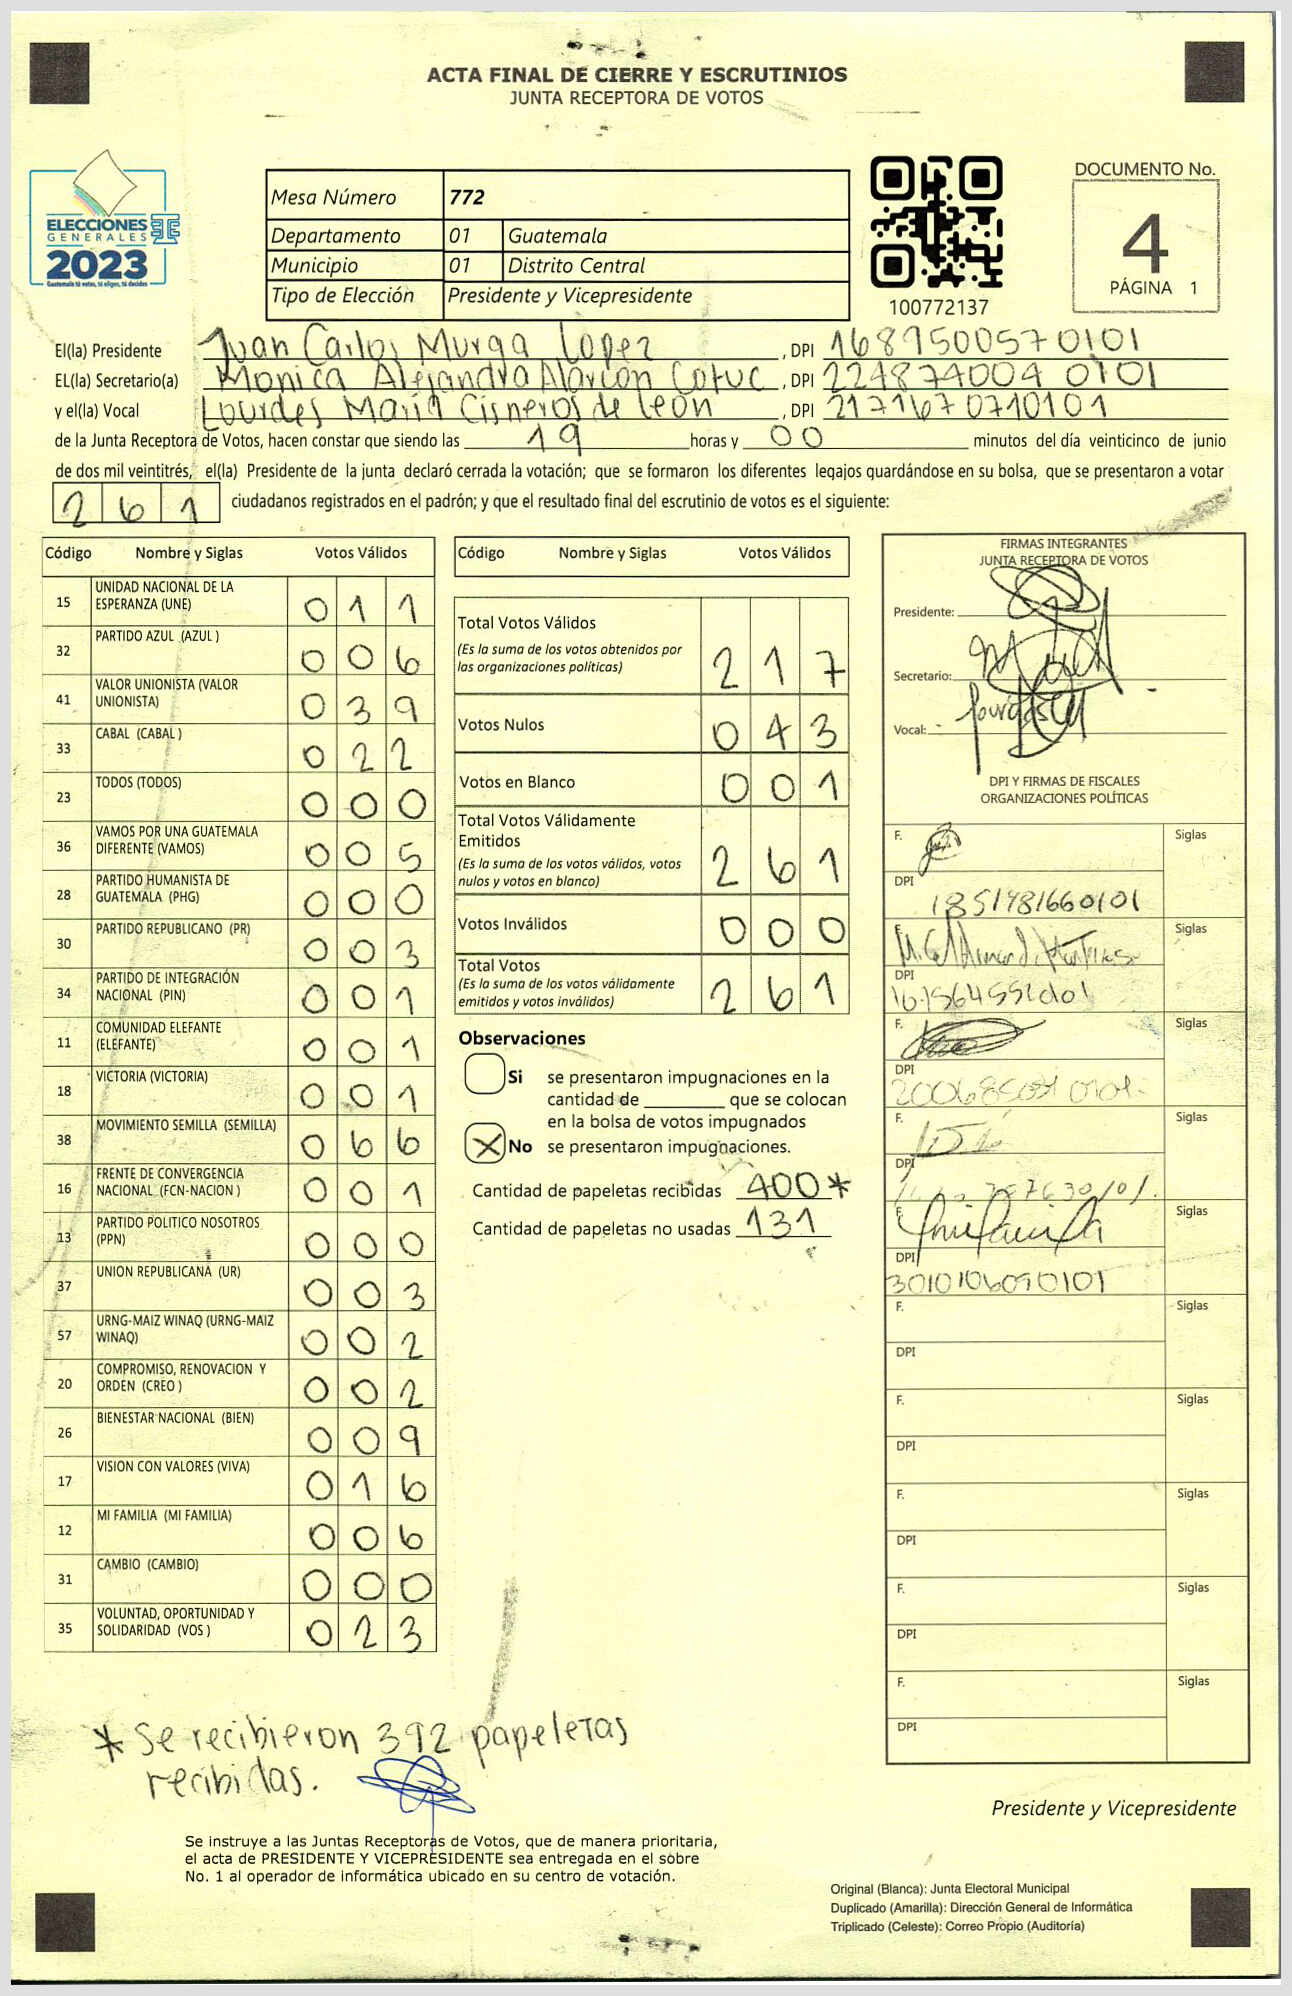 ACTA FINAL DE CIERRE Y ESCRUTINIOS
JUNTA RECEPTORA DE VOTOS
ELECCIONES
GENERALES
2023
Guatemala tú votas, tú eliges, tú decides
Mesa Número 772
Departamento 01 Guatemala
Municipio 01 Distrito Central
Tipo de Elección Presidente y Vicepresidente
100772137
DOCUMENTO No.
4
PÁGINA 1
El(la) Presidente Juan Carlos Murga Lopez, DPI 1689500570101
EL(la) Secretario(a) Monica Alejandra Alarcon Cotuc, DPI 2248740040101
y el(la) Vocal Lourdes María Cisneros de León, DPI 2171670710101
de la Junta Receptora de Votos, hacen constar que siendo las 19 horas y 00 minutos del día veinticinco de junio
de dos mil veintitrés, el(la) Presidente de la junta declaró cerrada la votación; que se formaron los diferentes legajos guardándose en su bolsa, que se presentaron a votar
261 ciudadanos registrados en el padrón; y que el resultado final del escrutinio de votos es el siguiente:
Código Nombre y Siglas Votos Válidos
15 UNIDAD NACIONAL DE LA
ESPERANZA (UNE) 011
32 PARTIDO AZUL (AZUL ) 006
41 VALOR UNIONISTA (VALOR
UNIONISTA) 039
33 CABAL (CABAL ) 022
23 TODOS (TODOS) 000
36 VAMOS POR UNA GUATEMALA
DIFERENTE (VAMOS) 005
28 PARTIDO HUMANISTA DE
GUATEMALA (PHG) 000
30 PARTIDO REPUBLICANO (PR) 003
34 PARTIDO DE INTEGRACIÓN
NACIONAL (PIN) 001
11 COMUNIDAD ELEFANTE
(ELEFANTE) 001
18 VICTORIA (VICTORIA) 001
38 MOVIMIENTO SEMILLA (SEMILLA) 066
16 FRENTE DE CONVERGENCIA
NACIONAL (FCN-NACION ) 001
13 PARTIDO POLITICO NOSOTROS
(PPN) 000
37 UNION REPUBLICANA (UR) 003
57 URNG-MAIZ WINAQ (URNG-MAIZ
WINAQ) 002
20 COMPROMISO, RENOVACION Y
ORDEN (CREO ) 002
26 BIENESTAR NACIONAL (BIEN) 009
17 VISION CON VALORES (VIVA) 016
12 MI FAMILIA (MI FAMILIA) 006
31 CAMBIO (CAMBIO) 000
35 VOLUNTAD, OPORTUNIDAD Y
SOLIDARIDAD (VOS ) 023
Código Nombre y Siglas Votos Válidos
Total Votos Válidos
(Es la suma de los votos obtenidos por
las organizaciones políticas) 217
Votos Nulos 043
Votos en Blanco 001
Total Votos Válidamente
Emitidos
(Es la suma de los votos válidos, votos
nulos y votos en blanco) 261
Votos Inválidos 000
Total Votos
(Es la suma de los votos válidamente
emitidos y votos inválidos) 261
Observaciones
Si se presentaron impugnaciones en la
cantidad de ________ que se colocan
en la bolsa de votos impugnados
X No se presentaron impugnaciones.
Cantidad de papeletas recibidas 400*
Cantidad de papeletas no usadas 131
FIRMAS INTEGRANTES
JUNTA RECEPTORA DE VOTOS
Presidente:
Secretario:
Vocal:
DPI Y FIRMAS DE FISCALES
ORGANIZACIONES POLÍTICAS
F. Siglas
DPI
1851481660101
F. Siglas
DPI
F. Siglas
DPI
F. Siglas
DPI
F. Siglas
DPI
3010106090101
F. Siglas
DPI
F. Siglas
DPI
F. Siglas
DPI
F. Siglas
DPI
F. Siglas
DPI
* Se recibieron 392 papeletas
recibidas.
Presidente y Vicepresidente
Se instruye a las Juntas Receptoras de Votos, que de manera prioritaria,
el acta de PRESIDENTE Y VICEPRESIDENTE sea entregada en el sobre
No. 1 al operador de informática ubicado en su centro de votación.
Original (Blanca): Junta Electoral Municipal
Duplicado (Amarilla): Dirección General de Informática
Triplicado (Celeste): Correo Propio (Auditoría)